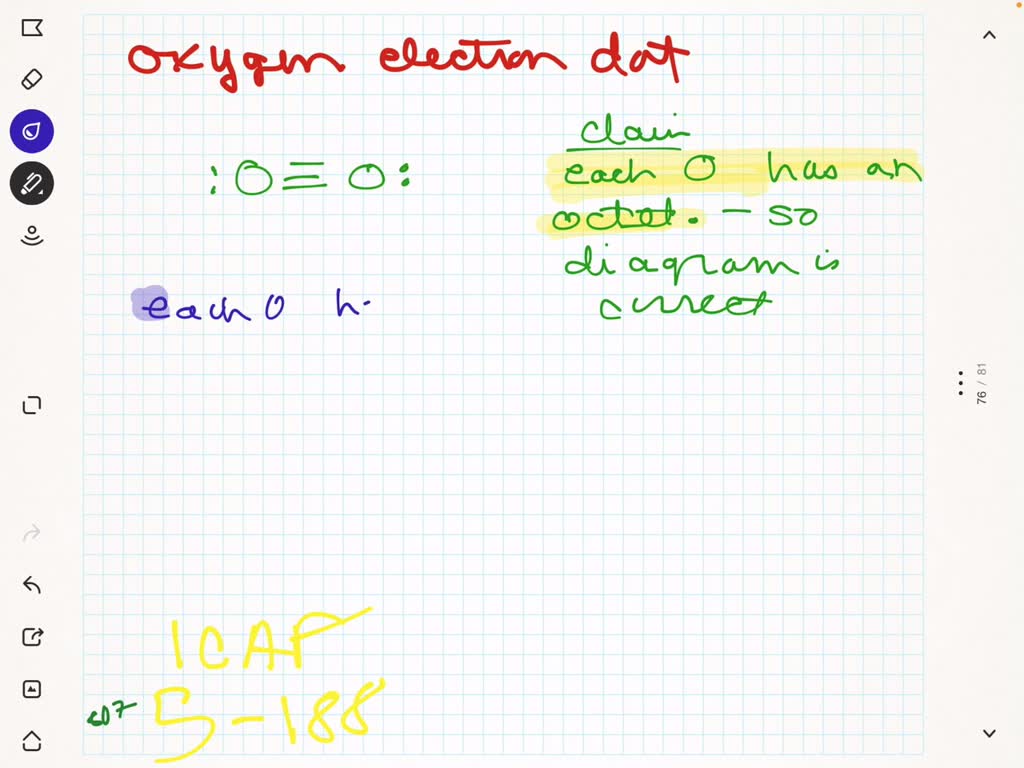 oxygen electron dot
claim
:O≡O:
each O has an
octet. - so
diagram is
correct
each O h
76 / 81
ICAP
5-188